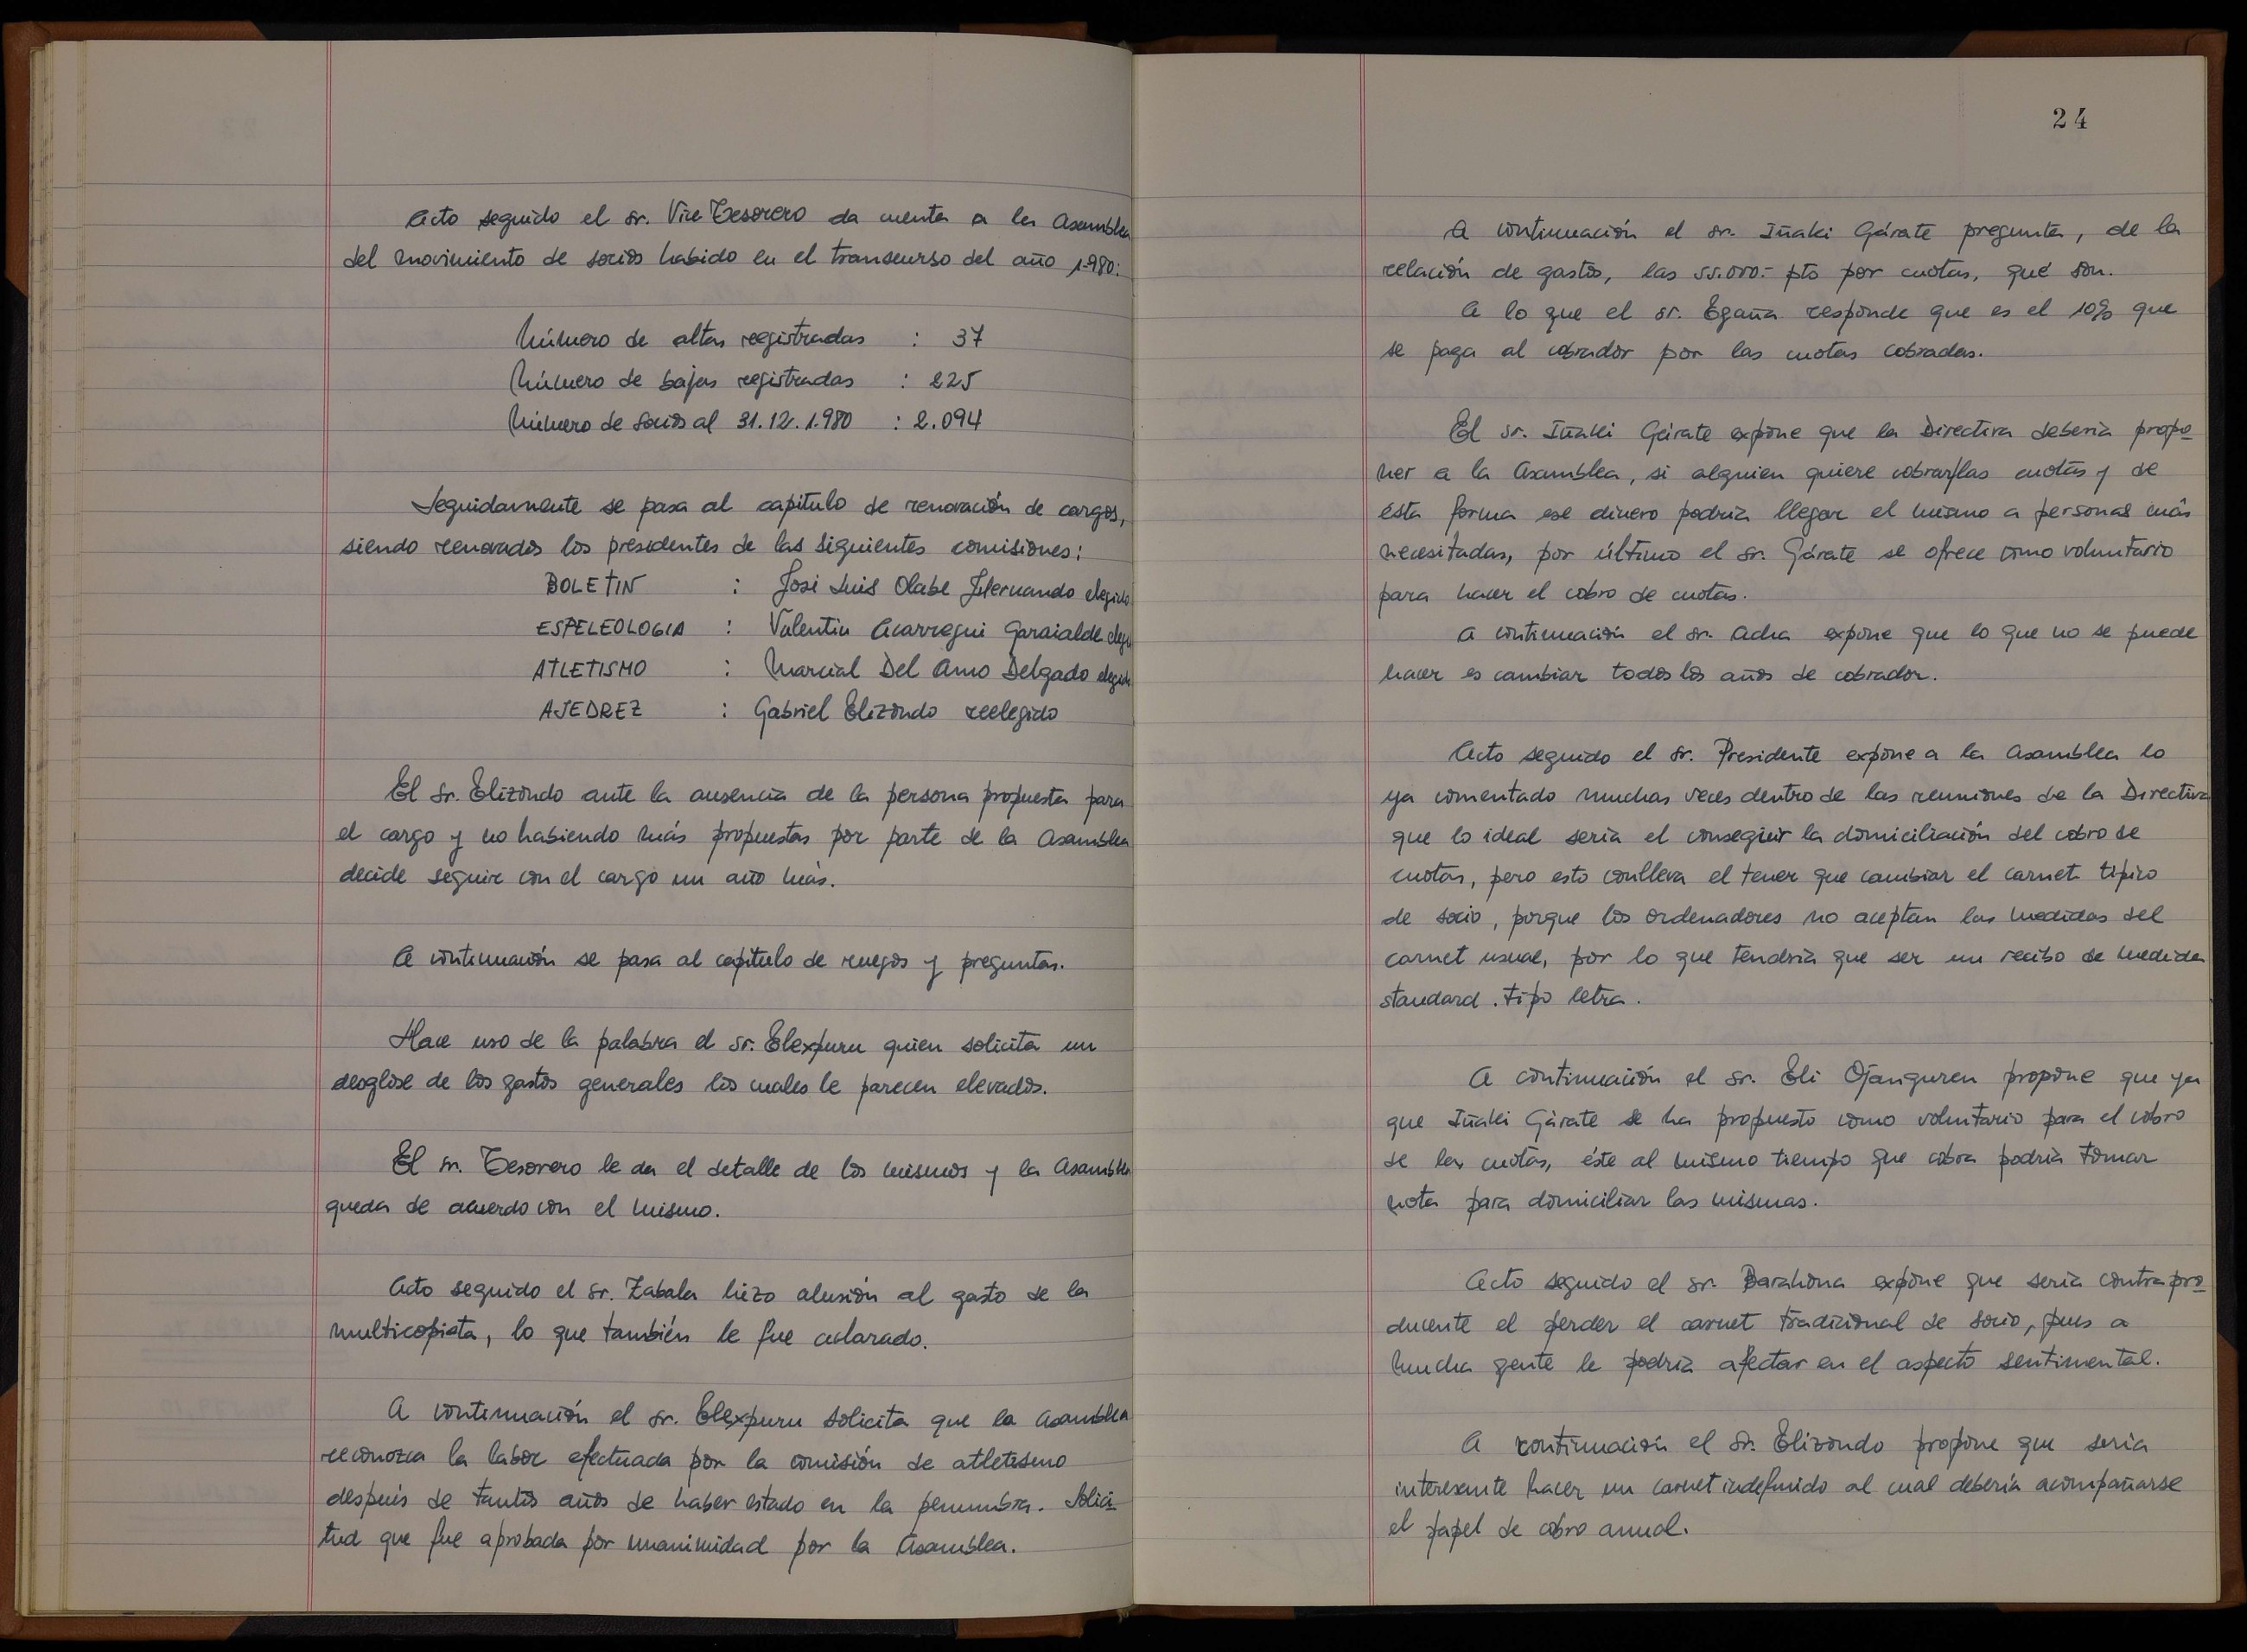 Acto seguido el sr. Vice Tesorero da cuenta a la Asamblea
del movimiento de socios habido en el transcurso del año 1.980:
Número de altas registradas : 37
Número de bajas registradas : 225
Número de socios al 31.12.1.980 : 2.094
Seguidamente se pasa al capitulo de renovación de cargos,
siendo renovados los presidentes de las siguientes comisiones:
BOLETIN : José Luis Olabe Hernando elegido
ESPELEOLOGIA : Valentin Acarregui Garaialde
ATLETISMO : Marcial Del Amo Delgado elegido
AJEDREZ : Gabriel Elizondo reelegido
El Sr. Elizondo ante la ausencia de la persona propuesta para
el cargo y no habiendo más propuestas por parte de la Asamblea
decide seguir con el cargo un año más.
A continuación se pasa al capítulo de ruegos y preguntas.
Hace uso de la palabra el sr. Elexpuru quien solicita un
desglose de los gastos generales los cuales le parecen elevados.
El sr. Tesorero le da el detalle de los mismos y la Asamblea
queda de acuerdo con el mismo.
Acto seguido el sr. Zabala hizo alusión al gasto de la
multicopista, lo que también le fue aclarado.
A continuación el sr. Elexpuru solicita que la Asamblea
reconozca la labor efectuada por la comisión de atletismo
después de tantos años de haber estado en la penumbra. Solici-
tud que fue aprobada por unanimidad por la Asamblea.
24
A continuación el sr. Iñaki Gárate pregunta, de la
relación de gastos, las 55.000.- pts por cuotas, qué son.
A lo que el sr. Egaña responde que es el 10% que
se paga al cobrador por las cuotas cobradas.
El sr. Iñaki Gárate expone que la Directiva debería propo-
ner a la Asamblea, si alguien quiere cobrar/las cuotas y de
ésta forma ese dinero podría llegar el mismo a personas más
necesitadas, por último el sr. Gárate se ofrece como voluntario
para hacer el cobro de cuotas.
A continuación el sr. Acha expone que lo que no se puede
hacer es cambiar todos los años de cobrador.
Acto seguido el sr. Presidente expone a la Asamblea lo
ya comentado muchas veces dentro de las reuniones de la Directiva
que lo ideal seria el conseguir la domiciliación del cobro de
cuotas, pero esto conlleva el tener que cambiar el carnet típico
de socio, porque los ordenadores no aceptan las medidas del
carnet usual, por lo que tendría que ser un recibo de medida
standard. tipo letra.
A continuación el sr. Eli Ojanguren propone que ya
que Iñaki Gárate se ha propuesto como voluntario para el cobro
de las cuotas, éste al mismo tiempo que cobra podría tomar
nota para domiciliar las mismas.
Acto seguido el sr. Barahona expone que sería contrapro-
ducente el perder el carnet tradicional de socio, pues a
mucha gente le podría afectar en el aspecto sentimental.
A continuación el Sr. Elizondo propone que seria
interesante hacer un carnet indefinido al cual debería acompañarse
el papel de cobro anual.